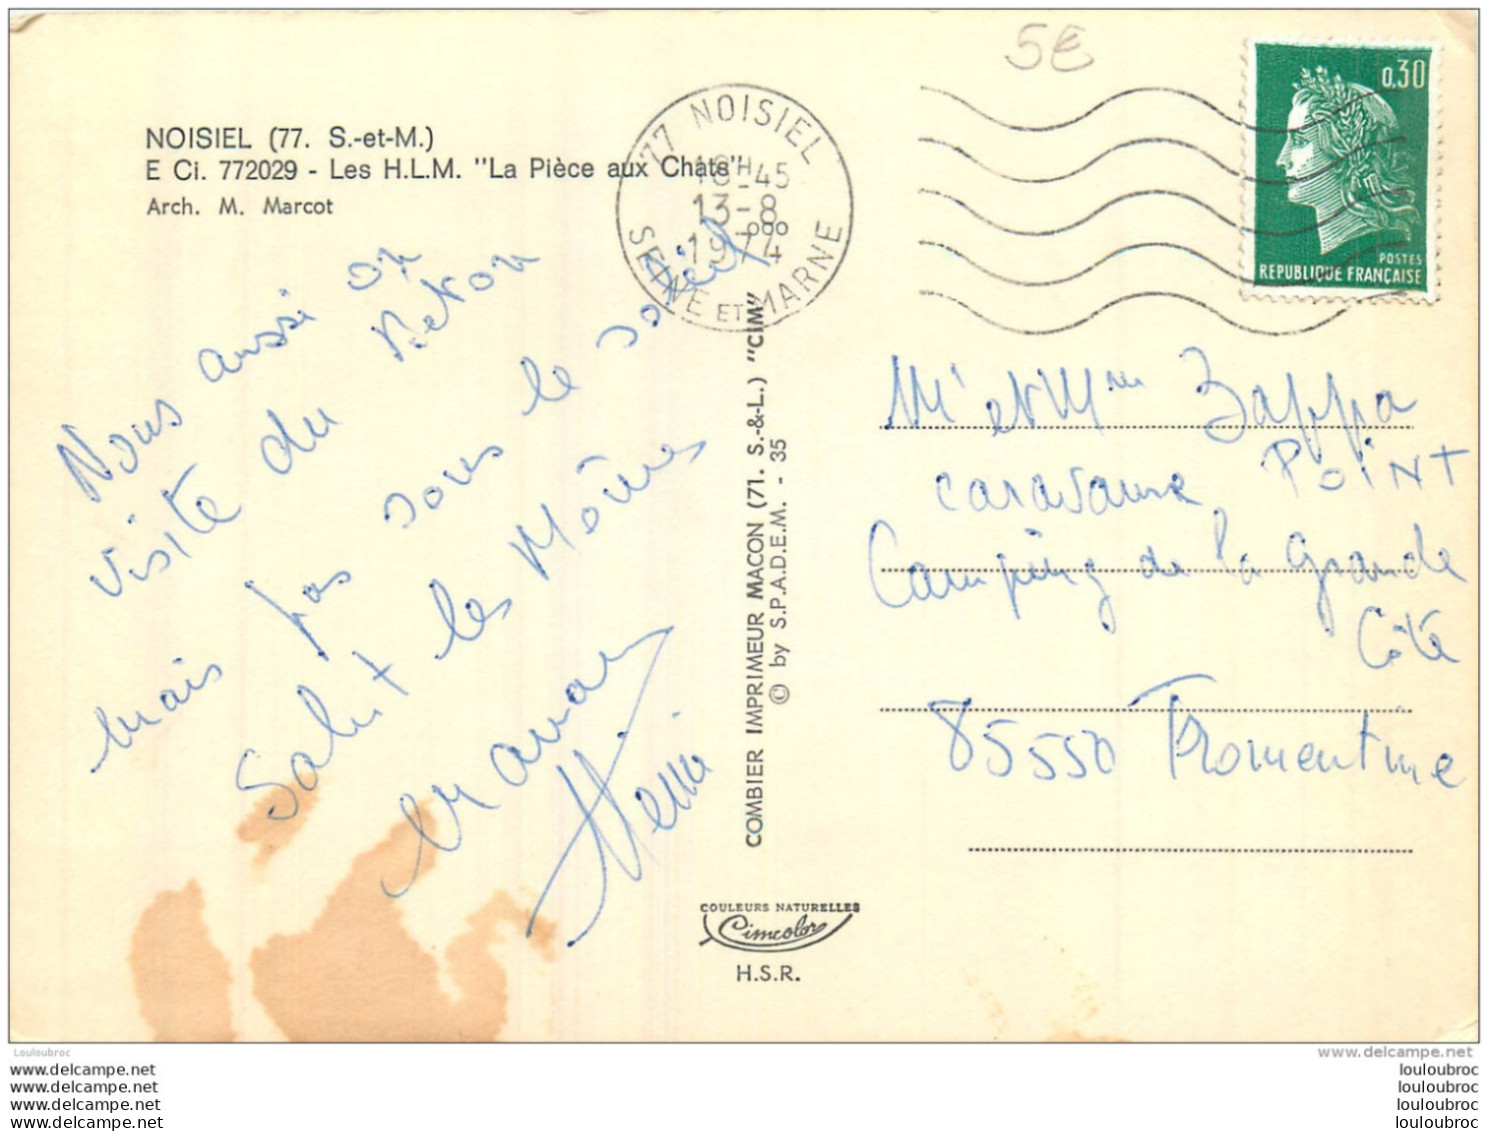 5€
NOISIEL (77. S.-et-M.)
E Ci. 772029 - Les H.L.M. "La Pièce aux Chats"
Arch. M. Marcot
77 NOISIEL
18H-45
13-8
1974
SEINE ET MARNE
0,30
POSTES
REPUBLIQUE FRANÇAISE
Nous aussi on
visite du béton
mais pas sous le soleil
Salut les Mômes
maman
COMBIER IMPRIMEUR MACON (71. S.-&-L.) "CIM"
© by S.P.A.D.E.M. - 35
Mr et Mme Zappa
caravane POINT
Camping de la Grande
Côte
85550 Fromentine
COULEURS NATURELLES
Cimcolor
H.S.R.
Louloubroc
www.delcampe.net
www.delcampe.net
www.delcampe.net
www.delcampe.net
www.delcampe.net
louloubroc
louloubroc
louloubroc
louloubroc